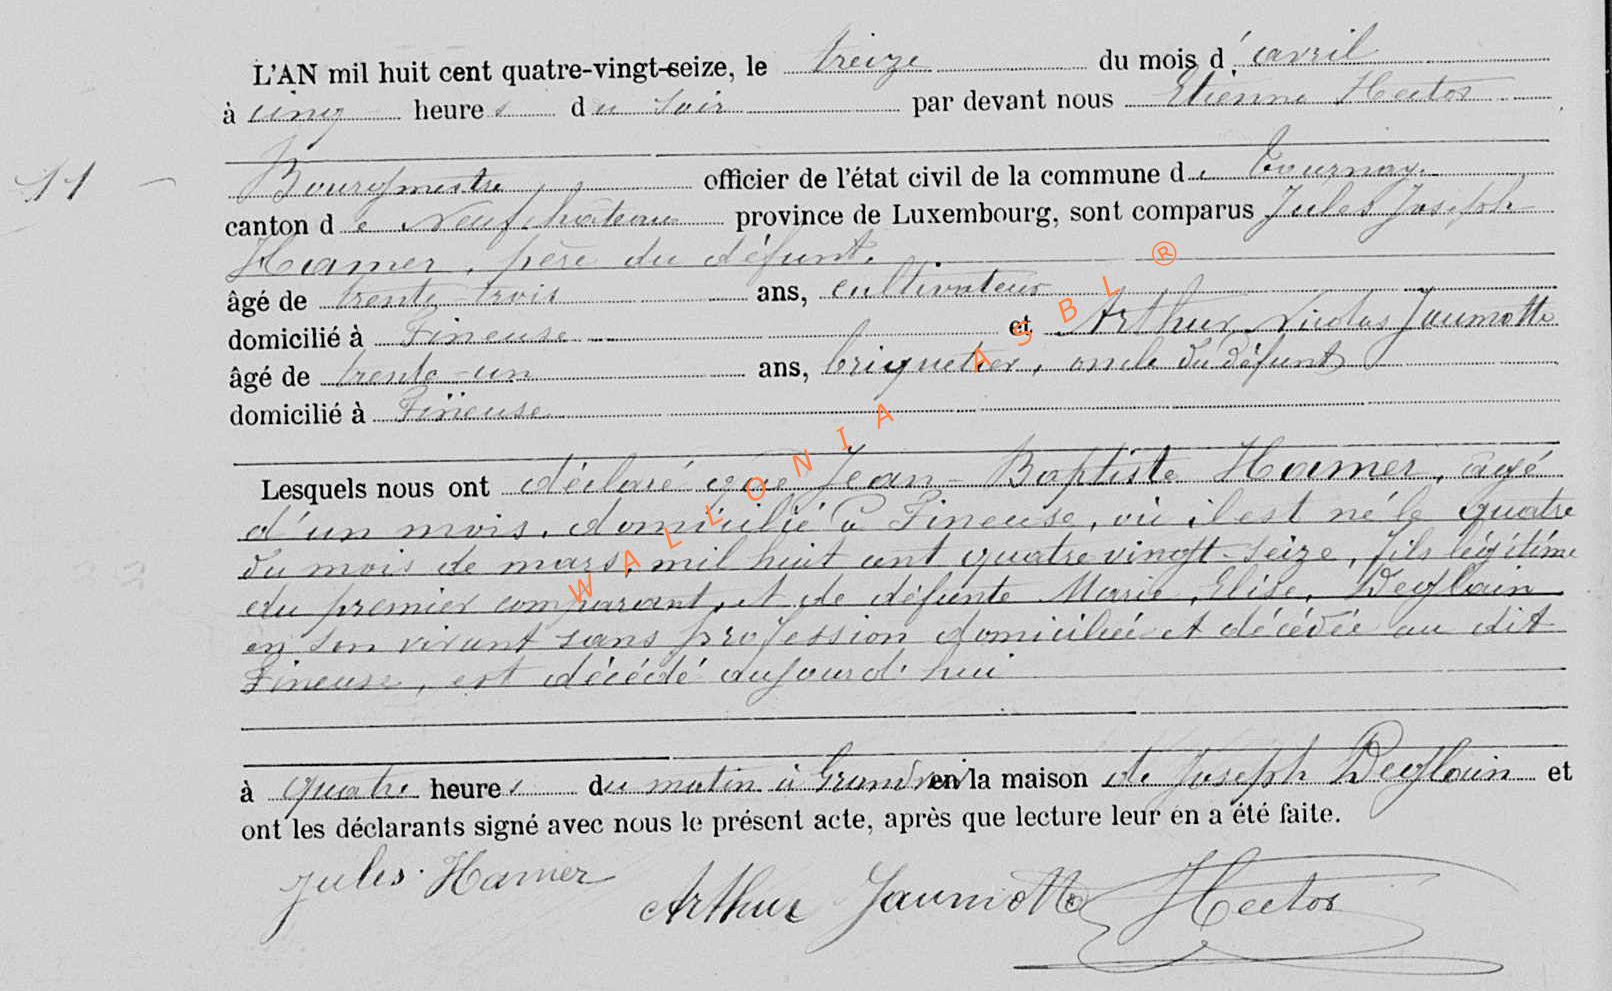 L'AN mil huit cent quatre-vingt-seize, le treize du mois d'avril
à cinq heures du soir par devant nous Etienne Hector
11 -
Bourgmestre officier de l'état civil de la commune de Tournay.
canton de Neufchâteau province de Luxembourg, sont comparus Jules Joseph
Hamer, père du défunt.
âgé de trente-trois ans, cultivateur
domicilié à Fineuse et Arthur Nicolas Jaumotte
âgé de trente-un ans, briquetier, oncle du défunt
domicilié à Fineuse
Lesquels nous ont déclaré que Jean-Baptiste Hamer, âgé
d'un mois, domicilié à Fineuse, où il est né le quatre
du mois de mars, mil huit cent quatre vingt-seize, fils légitime
du premier comparant, et de défunte Marie, Elise, Deglain
en son vivant sans profession domiciliée et décédée au dit
Fineuse, est décédé aujourd'hui
à quatre heures du matin à Grandvoir en la maison de Joseph Deglain et
ont les déclarants signé avec nous le présent acte, après que lecture leur en a été faite.
Jules Hamer Arthur Jaumotte Hector
WALLONIA ASBL ®